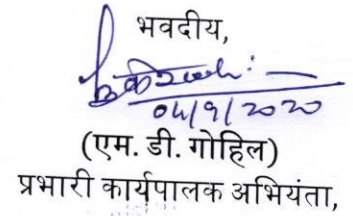 भवदीय,
04/9/2020
(एम. डी. गोहिल)
प्रभारी कार्यपालक अभियंता,